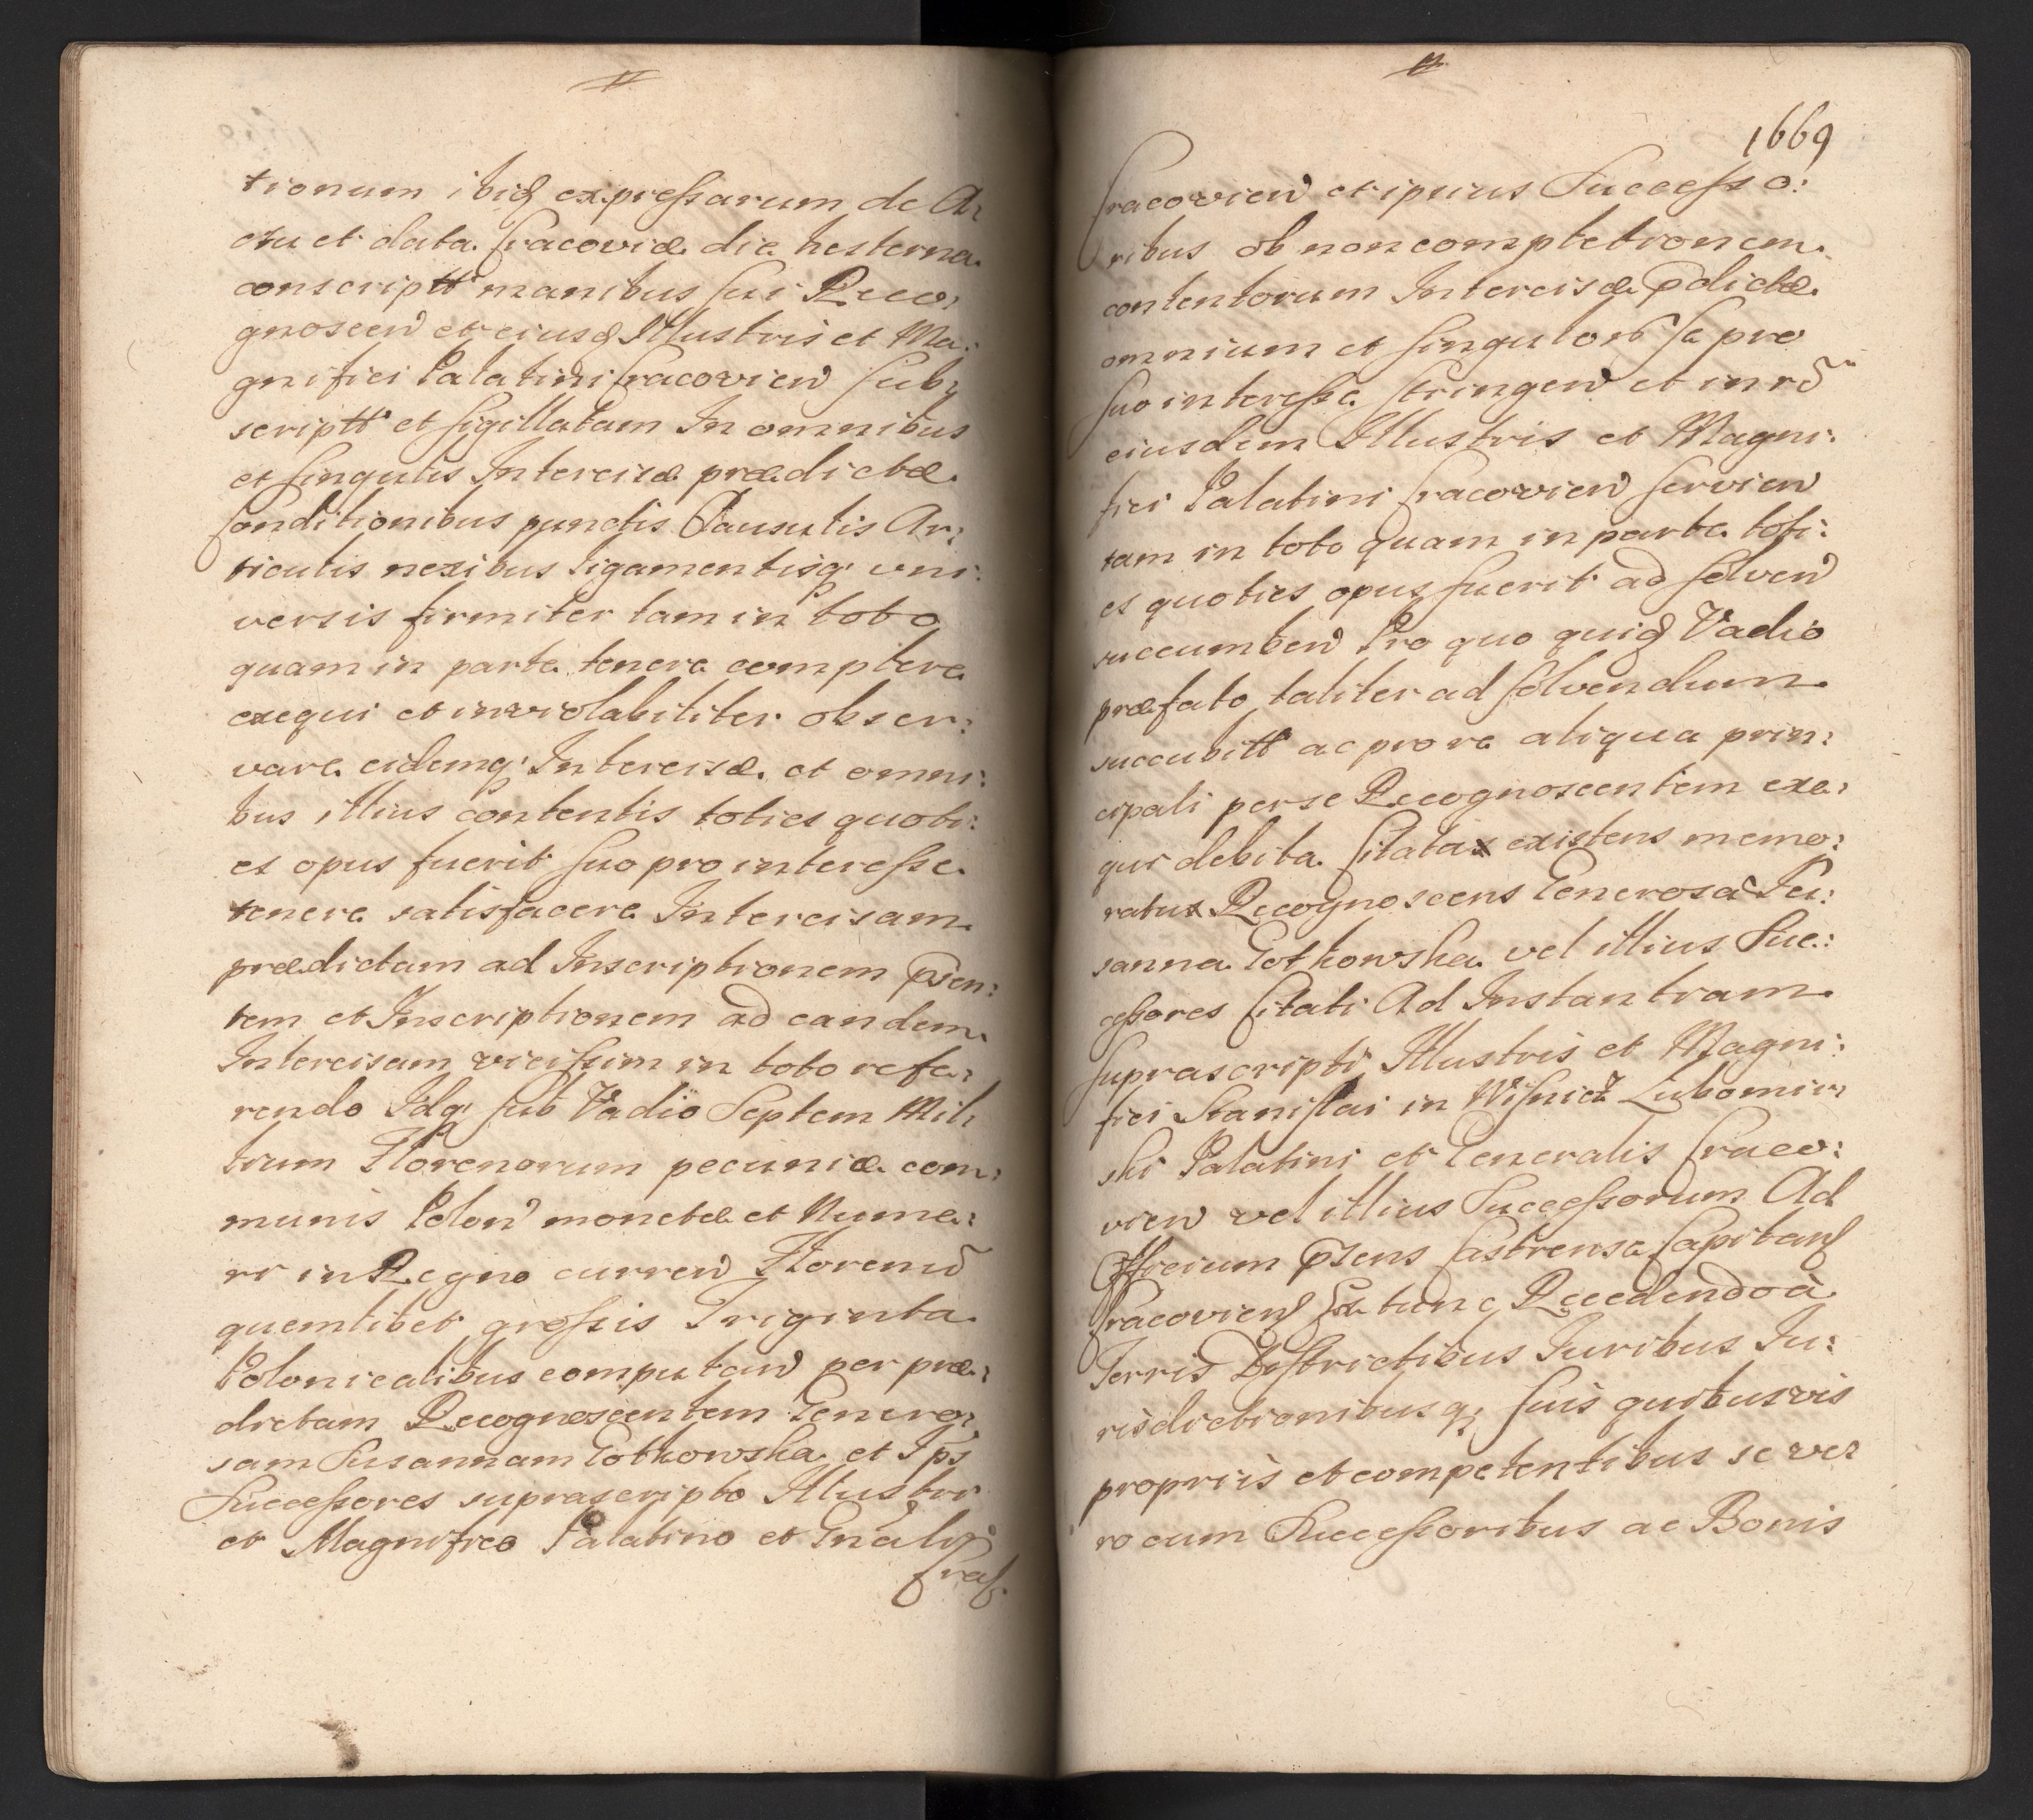 tionum ibid expressarum de A:
ctu et data Cracoviæ die hesterna
conscriptt manibus sui Reco,
gnoscen et eiusd Illustris et Ma:
gnifici Palatini Cracovien sub,
scriptt et sigillatam In omnibus
et singulis Intercisæ prædictæ
Conditionibus punctis Clausulis Ar:
ticulis nexibus ligamentisq uni:
versis firmiter tam in toto
quam in parte tenere complere
exequi et inviolabiliter obser:
vare eidemq Intercisæ et omni:
bus illius contentis toties quoti:
es opus fuerit suo pro interesse
tenere satisfacere Intercisam
prædictam ad Inscriptionem psen:
tem et Inscriptionem ad eandem
Intercisam vicissim in toto refe:
rendo Idq sub Vadio Septem Mil,
lium Florenorum pecuniæ com:
munis Polon monetæ et Nume:
ri in Regno curren Floreno
quemlibet grossis Triginta
Polonicalibus computan per præ:
dictam Recognoscentem Genero,
sam Susannam Gotkowska et Ips
Successores suprascripto Illustri
et Magnifico Palatino et Gnali
Crac.
1669
Cracovien et ipsius Successo:
ribus ob non completionem
contentorum Intercisæ pdictæ
omnium et singulor se pro
suo interesse stringen et in rd
eiusdem Illustris et Magni:
fici Palatini Cracovien servien
tam in toto quam in parte toti:
es quoties opus fuerit ad solven
succumben Pro quo quid Vadio
præfato taliter ad solvendum
succubitt ac pro re aliqua prin:
cipali per se Recognoscentem exe:
qui debita Citata existens memo:
rata Recognoscens Generosa Su:
sanna Gotkowska vel illius Suc:
cessores Citati Ad Instantiam
suprascripti Illustris et Magni:
fici Stanislai in Wisnicz Lubomir:
ski Palatini et Generalis Craco:
vien vel illius Successorum Ad
Officium psens Castrense Capitan
Cracovien Ex tunc Recedendo a
Terris Districtibus Iuribus Iu:
risdictionibusq suis quibusvis
propriis et competentibus se ve:
ro cum Successoribus ac Bonis